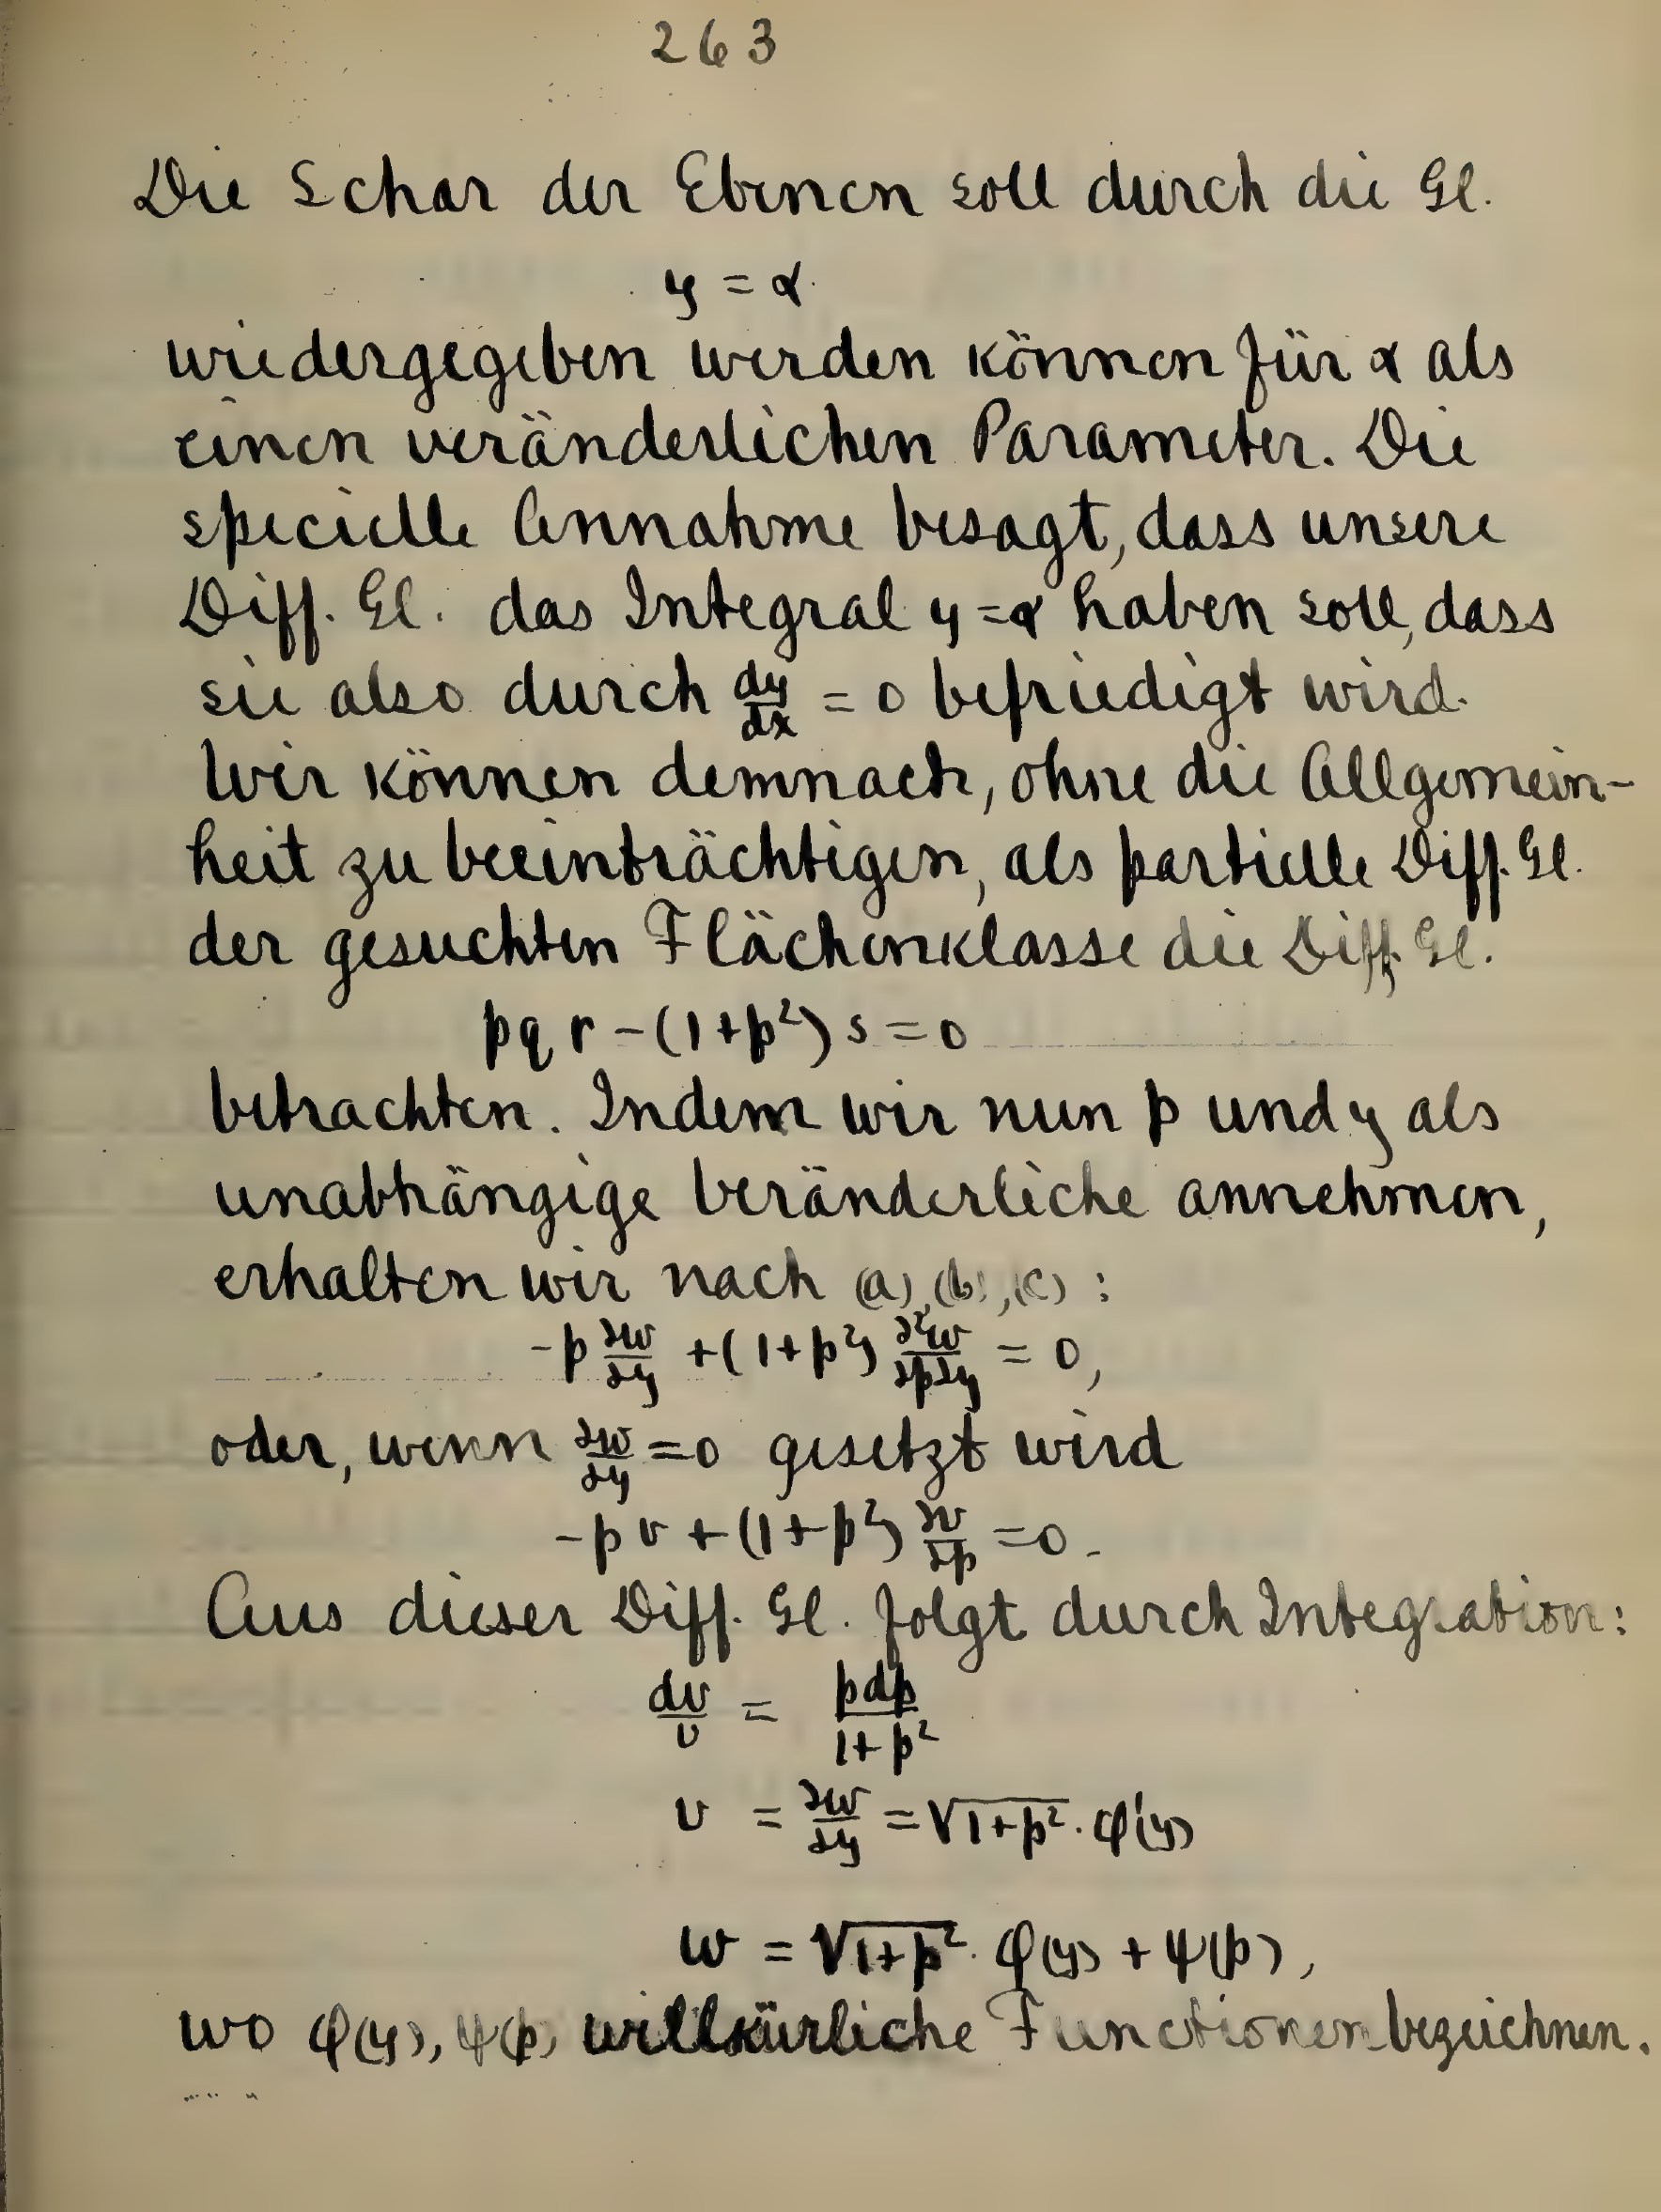 263
Die Schar der Ebenen soll durch die Gl.
y = α.
wiedergegeben werden können für α als
einen veränderlichen Parameter. Die
specielle Annahme besagt, dass unsere
Diff. Gl. das Integral y = α haben soll, dass
sie also durch dy/dx = 0 befriedigt wird.
Wir können demnach, ohne die Allgemein-
heit zu beeinträchtigen, als partielle Diff. Gl.
der gesuchten Flächenklasse die Diff. Gl.
pqr - (1+p²) s = 0
betrachten. Indem wir nun p und y als
unabhängige Veränderliche annehmen,
erhalten wir nach (a), (b), (c) :
-p ∂w/∂y + (1+p²) ∂²w/∂p∂y = 0,
oder, wenn ∂w/∂y = 0 gesetzt wird
-p v + (1+p²) ∂v/∂p = 0.
Aus dieser Diff. Gl. folgt durch Integration:
dv/v = pdp/1+p²
v = ∂w/∂y = √1+p² . φ'(y)
w = √1+p² . φ(y) + ψ(p),
wo φ(y), ψ(p) willkürliche Functionen bezeichnen.